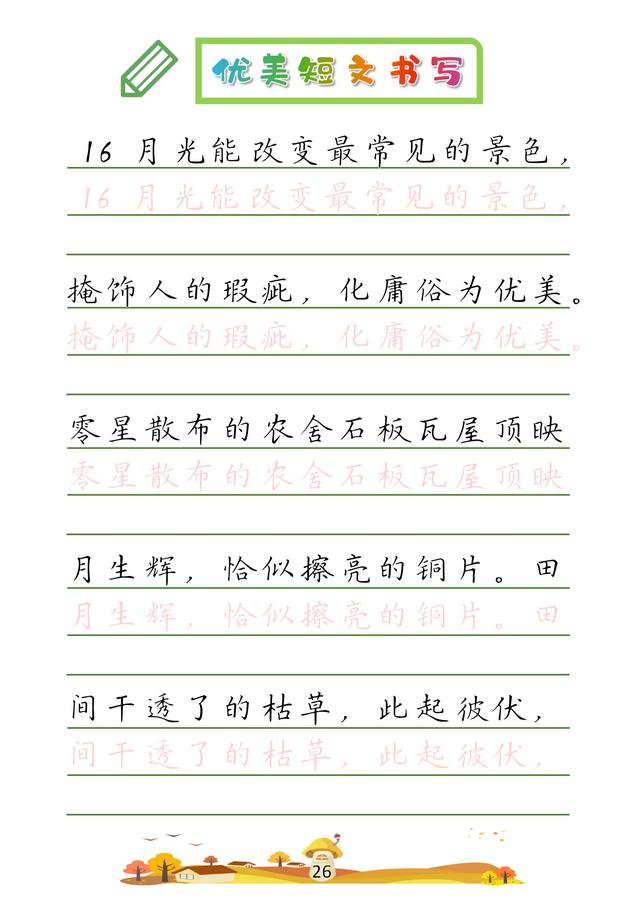 优美短文书写
16 月光能改变最常见的景色，
16 月光能改变最常见的景色，
掩饰人的瑕疵，化庸俗为优美。
掩饰人的瑕疵，化庸俗为优美。
零星散布的农舍石板瓦屋顶映
零星散布的农舍石板瓦屋顶映
月生辉，恰似擦亮的铜片。田
月生辉，恰似擦亮的铜片。田
间干透了的枯草，此起彼伏，
间干透了的枯草，此起彼伏，
26